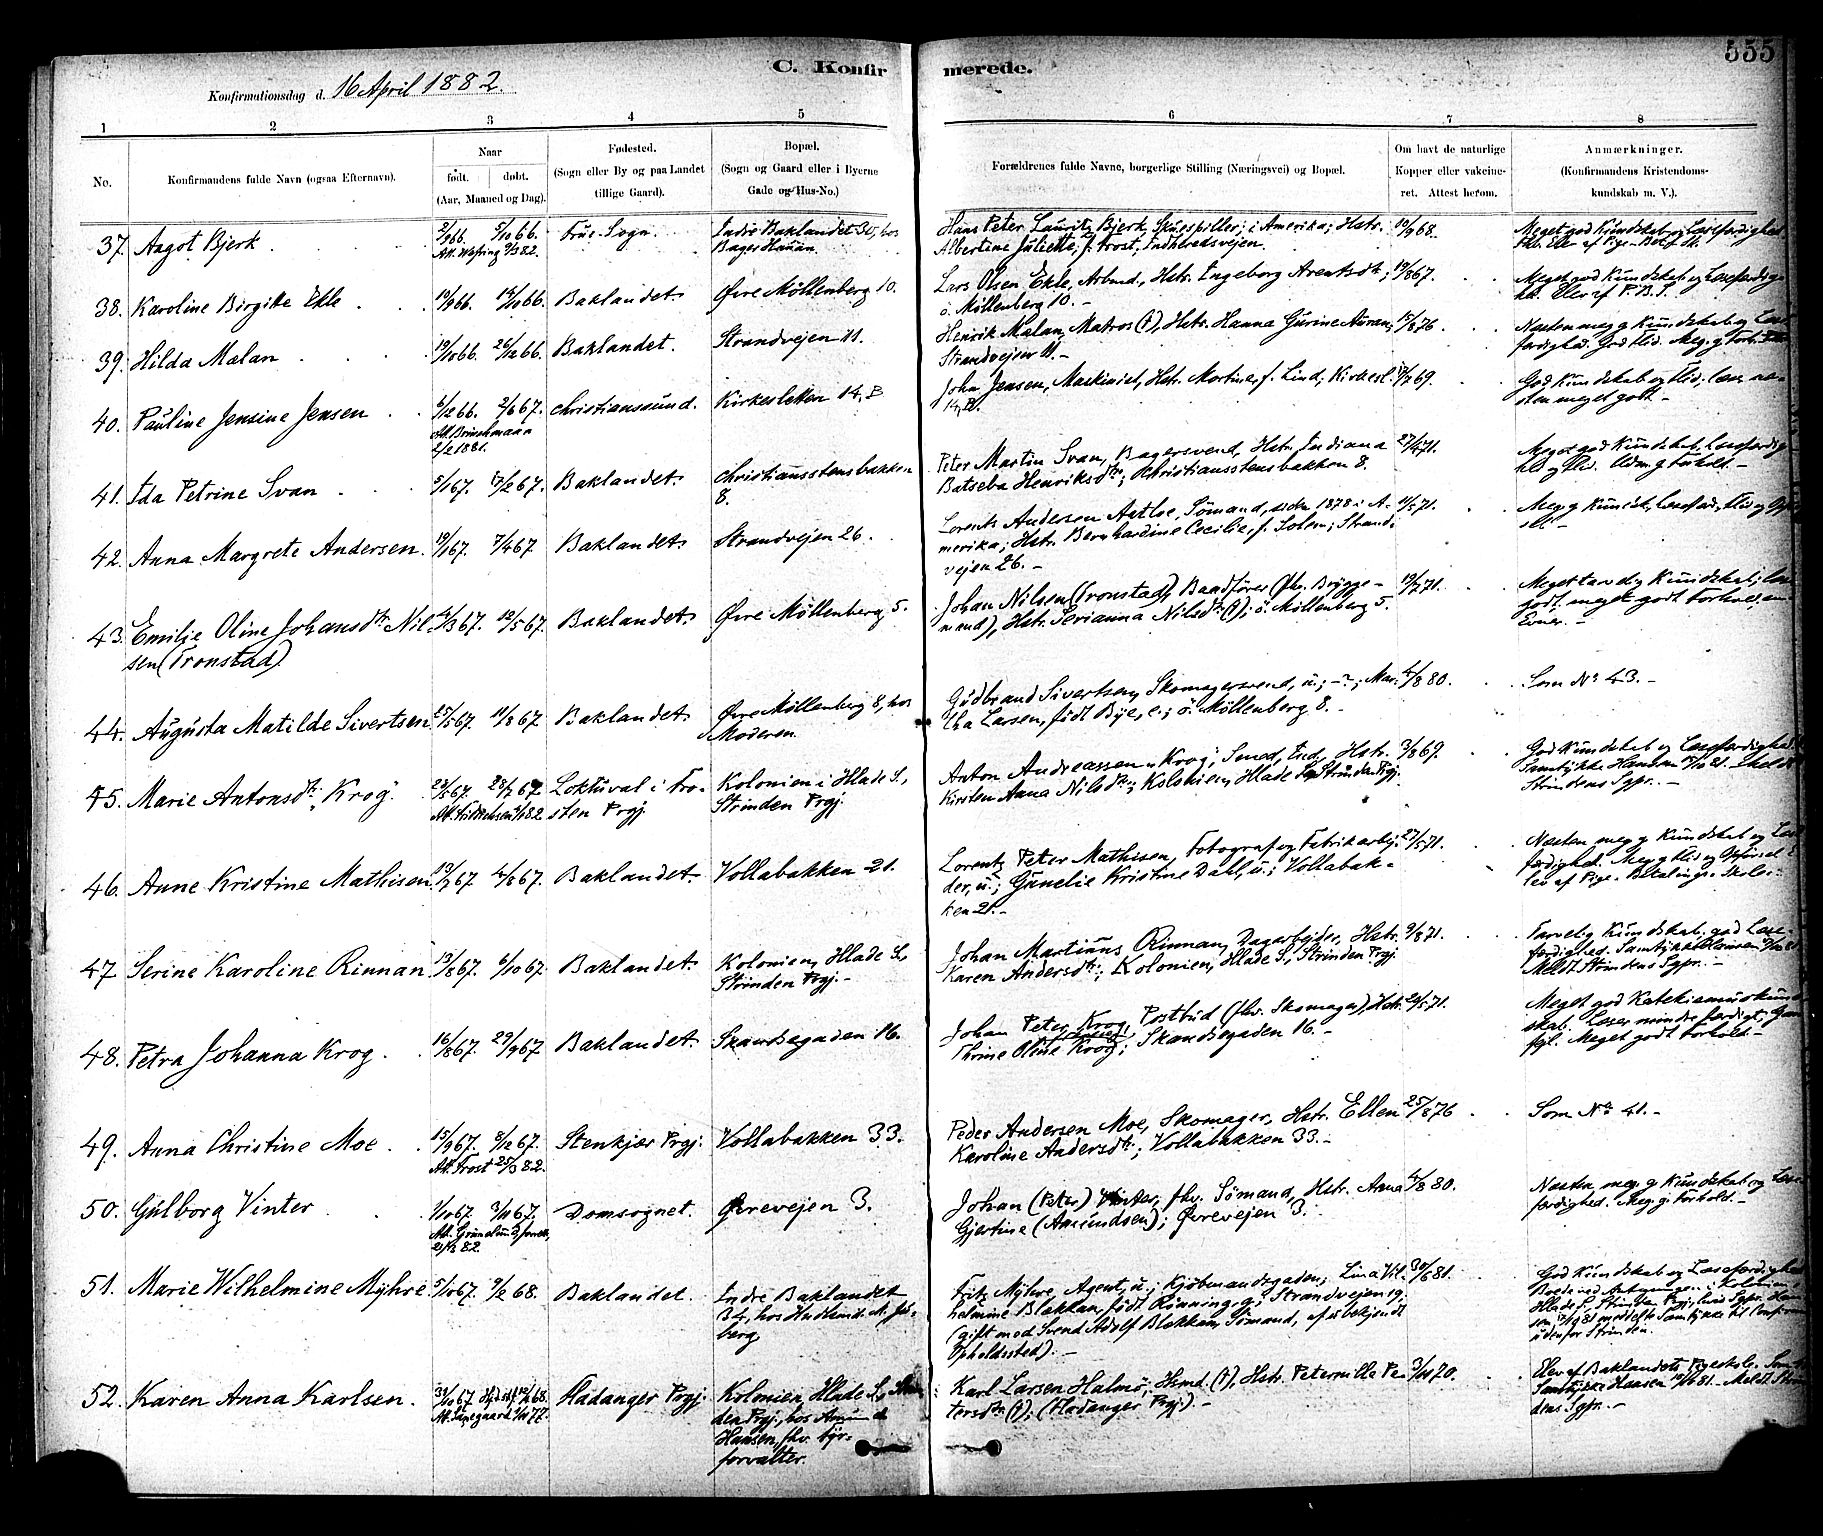 555
C. Konfirmerede.
Konfirmationsdag d. 16 April 1882.
1 2 3 4 5 6 7 8
No.
Konfirmandens fulde Navn (ogsaa Efternavn).
Naar
født. døbt.
(Aar, Maaned og Dag).
Fødested.
(Sogn eller By og paa Landet
tillige Gaard).
Bopæl.
(Sogn og Gaard eller i Byerne
Gade og Hus-No.)
Forældrenes fulde Navne, borgerlige Stilling (Næringsvei) og Bopæl.
Om havt de naturlige
Kopper eller vakcine-
ret. Attest herom.
Anmærkninger.
(Konfirmandens Kristendoms-
kundskab m. V.).
37. Aagot Bjerk.
2/9 66. 5/10 66.
Frue Sogn.
Indre Baklandet 30, hos
Bager Hauan.
Hans Peter Lauritz Bjerk, Skuespiller; i Amerika; Hstr.
Albertine Juliette, f. Frost, Indherredsvejen.
19/9 68.
Meget god Kundskab og Læsefærdighed
38. Karoline Birgitte Ekle
Baklandet.
Øvre Møllenberg 10.
Lars Olsen Ekle, Arbmd., Hstr. Ingeborg Arentsdtr;
ö. Möllenberg 10. -
19/8 67.
Meget god Kundskab og Læsefærdig-
hed. Elev af P. B. S.
39. Hilda Malan
19/10 66. 26/12 66.
Baklandet.
Strandvejen 11.
Henrik Malan, Matros (†), Hstr. Hanna Gurine Auran,
Strandvejen 11. -
15/8 76.
Næsten meg. g. Kundskab og Læse-
færdighed. God Flid. Meg. g. Forh.
40. Pauline Jensine Jensen
6/12 66. 2/6 67.
Att. Brinchmann
2/2 1881.
Christianssund.
Kirkesletten 14, B
John Jensen, Maskinist, Hstr. Martine, f. Lind; Kirkesl.
14, B.
God Kundskab og Flid; læser næ-
sten meget godt. -
41. Ida Petrine Svan
5/1 67. 17/2 67.
Baklandet.
Christianstensbakken
8.
Peter Martin Svan, Bagersvend, Hstr. Indiana
Batseba Henriksdtr; Christianstensbakken 8.
27/4 71.
Meget god Kundskab, Læsefærdig-
hed og Flid. Udm. g. Forhold. -
42. Anna Margrete Andersen.
19/1 67. 7/4 67.
Baklandet.
Strandvejen 26.
Lorents Andersen Aatloe, Sømand, siden 1878 i A-
merika; Hstr. Bernhardine Cecilie, f. Solem; Strand-
vejen 26. -
11/5 71.
Meg. g. Kundsk., Læsefær., Flid og
43. Emilie Oline Johansdtr Nil-
sen (Tronstad)
4/3 67. 12/5 67.
Baklandet.
Øvre Møllenberg 5.
Johan Nilsen (Tronstad), Baadfører (fhv. Brygge-
mand), Hstr. Serianna Nilsdtr (†); ö. Möllenberg 5.
19/7 71.
Meget tarvelig Kundskab; læser
godt, meget godt Forhold, sm.
Evner. -
44. Augusta Matilde Sivertsen
25/5 67. 11/8 67.
Baklandet.
Øvre Møllenberg 8, hos
Moderen.
Gudbrand Sivertsen, Skomagersvend, u.; - ?; Mar-
tha Larsen, født Bye, e.; ö. Möllenberg 8. -
4/8 80.
Som No 43. -
45. Marie Antonsdtr Krog.
23/5 67. 28/7 67.
Loktuval i Fro-
sten Prgj.
Kolonien i Hlade S.,
Strinden Prgj.
Anton Andreassen Krog, Smed, Ind., Hstr.
Kirsten Anna Nilsdtr; Kolonien, Hlade S., Strinden Prgj.
3/8 69.
God Kundskab og Læsefærdighed.
Samtykke Hansen 17/10 81. Meldt
Strindens Sgpr. -
46. Anne Kristine Mathisen
19/7 67. 4/8 67.
Baklandet.
Vollabakken 21.
Lorentz Peter Mathisen, Fotograf og Fabrikarbej-
der, u.; Gunelie Kristine Dahl, u.; Vollabak-
ken 21. -
27/5 71.
Næsten meg. g. Kundskab og Læse-
færdighed. Meg. g. Flid og Opførsel. E-
lev af Pige-Betalings-Skolen.
47. Serine Karoline Rinnan
13/8 67. 6/10 67.
Baklandet.
Kolonien, Hlade S.,
Strinden Prgj. -
Johan Martinus Rinnan, Dagarbejder, Hstr.
Karen Andersdtr; Kolonien, Hlade S., Strinden Prgj.
9/8 71.
Tarvelig Kundskab, god Læse-
færdighed. Samtykke Hansen 17/10 81.
Meldt Strindens Sgpr. -
48. Petra Johanna Krog.
16/8 67. 29/9 67.
Baklandet.
Skandsegaden 16.
Johan Peter Krog, Postbud (fhv. Skomager), Hstr.
Thrine Oline Krog; Skandsegaden 16. -
29/5 71.
Meget god Katekismuskund-
skab. Læser mindre færdigt.
Meget godt Forhold. -
49. Anna Christine Moe
15/9 67. 8/12 67.
Att. Frost 25/3 82.
Stenkjær Prgj.
Vollabakken 33.
Peder Andersen Moe, Skomager, Hstr. Ellen
Karoline Andersdtr; Vollabakken 33. -
25/8 76
Som No 41. -
50. Gulborg Vinter
1/10 67. 3/11 67.
Domsognet.
Øvrevejen 3.
Johan (Peter) Vinter, fhv. Sømand, Hstr. Anna
Gjertine (Amundsen); Øvrevejen 3.
4/8 80.
Næsten meg. g. Kundskab og Læse-
færdighed. Meg. g. Forhold. -
51. Marie Wilhelmine Myhre
5/10 67. 9/2 68.
Baklandet.
Indre Baklandet
34, hos
berg
Fritz Myhre, Agent, u.; Kjøbmandsgaden; Lina Vil-
helmine Blekkan, født Rønning, g.; Strandvejen 19.
(gift med Svend Adolf Blekkan, Sømand, af ubekjendt
Opholdssted). -
30/6 81.
God Kundskab og Læsefærdighed
Kolonien
Hlade S., Strinden Prgj., hvis Sgpr. Han-
sen 17/9 81 meddelte Samtykke til Confirm.
udenfor Strinden.
52. Karen Anna Karlsen.
Fladanger Prgj.
Kolonien, Hlade S., Strin-
den Prgj., hos Amund
Hansen, fhv.
forvalter.
Karl Larsen Halmö, Hsmd. (†), Hstr. Peternille Pe-
tersdtr (†); (Fladanger Prgj.) -
3/10 70.
Elev af Baklandets Pigeskole.
Samtykke Hansen 17/10 81. Meldt Strin-
dens Sgpr. -